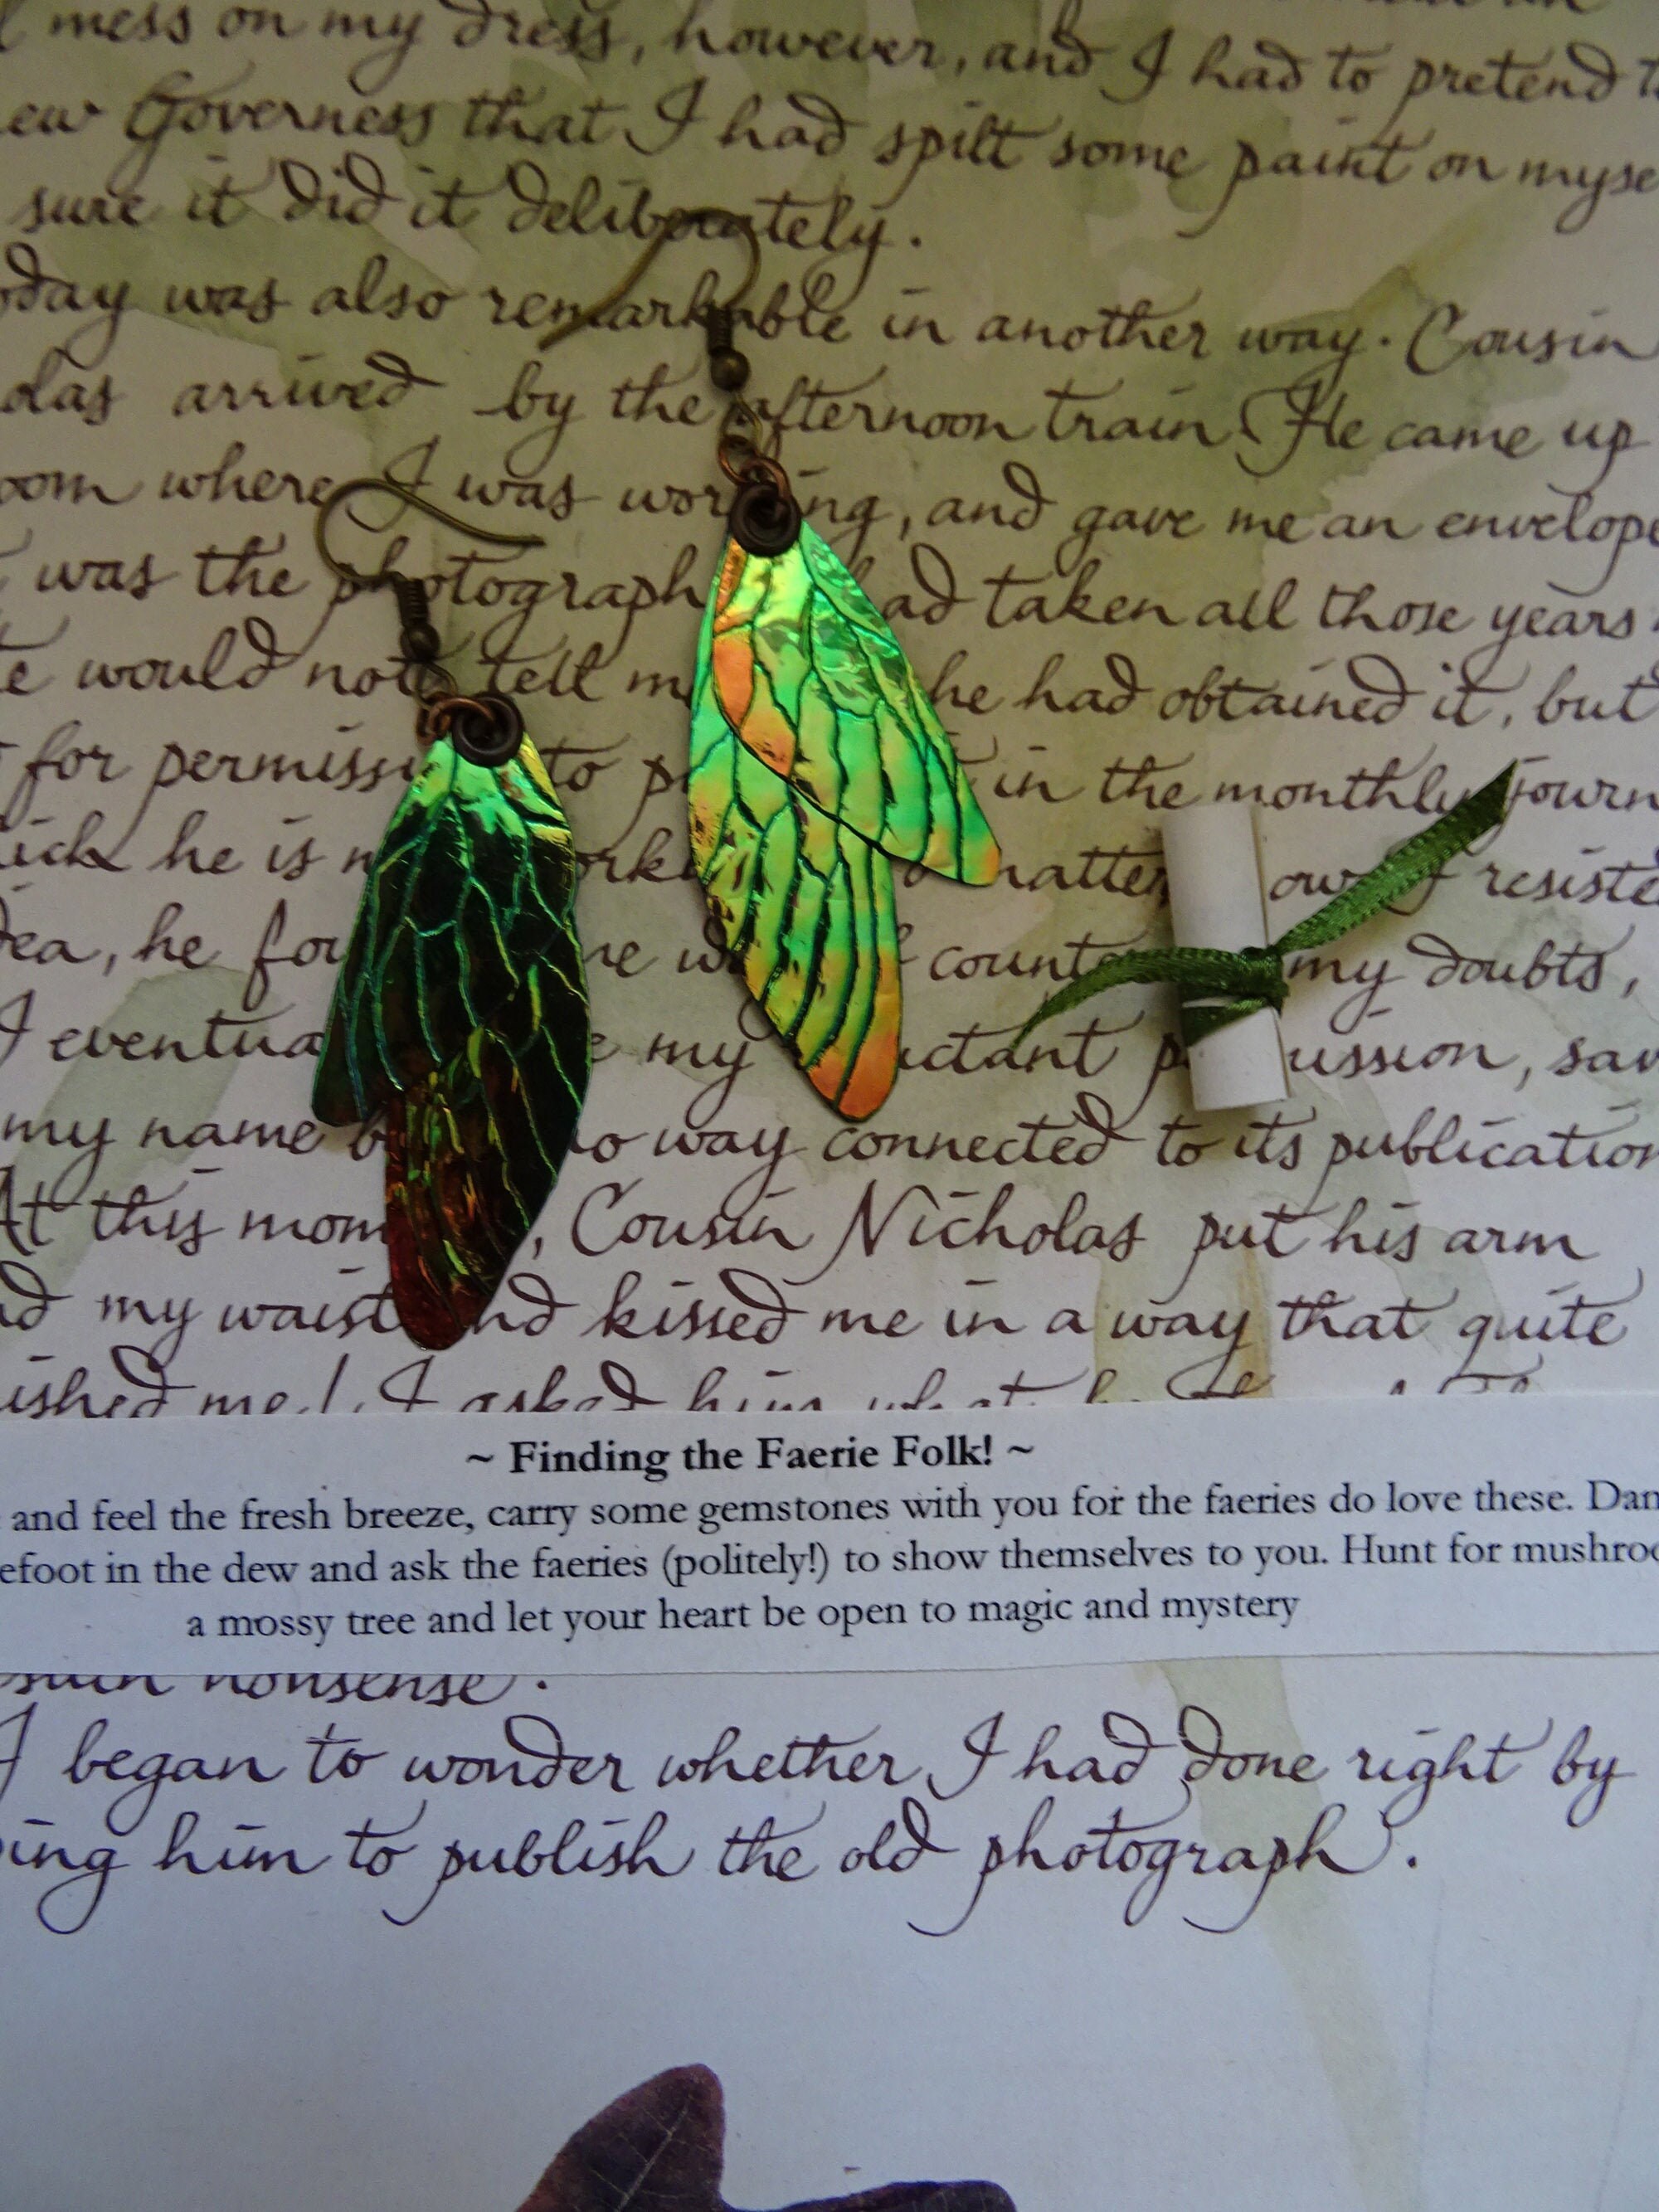 mess on my dress, however, and I had to pretend t
ew Governess that I had spilt some paint on myse
sure it did it deliberately.
oday was also remarkable in another way. Cousin
olas arrived by the afternoon train. He came up
oom where I was working, and gave me an envelope
was the photograph had taken all those years
e would not tell m he had obtained it, but
for permissi to p in the monthly journ
ick he is n ork matter ow I resiste
dea, he fou ne w counte my doubts,
I eventua e my uctant p ission, sav
my name b no way connected to its publication
At this mom , Cousin Nicholas put his arm
nd my waist and kissed me in a way that quite
ished me! I asked him what
~ Finding the Faerie Folk! ~
and feel the fresh breeze, carry some gemstones with you for the faeries do love these. Dan
efoot in the dew and ask the faeries (politely!) to show themselves to you. Hunt for mushroo
a mossy tree and let your heart be open to magic and mystery
such nonsense.
I began to wonder whether I had done right by
ing him to publish the old photograph.